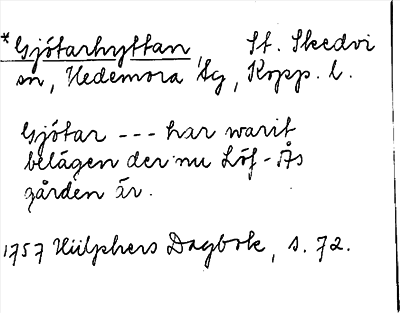 *Gjötarhyttan, St. Skedvi
sn, Hedemora tg, Kopp. l.
Gjötar --- har warit
belägen der nu Löf-Ås
gården är.
1757 Hülphers Dagbok, s. 72.